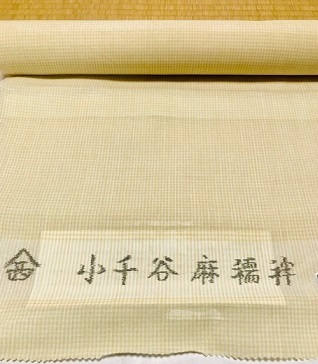 西 小千谷麻襦袢